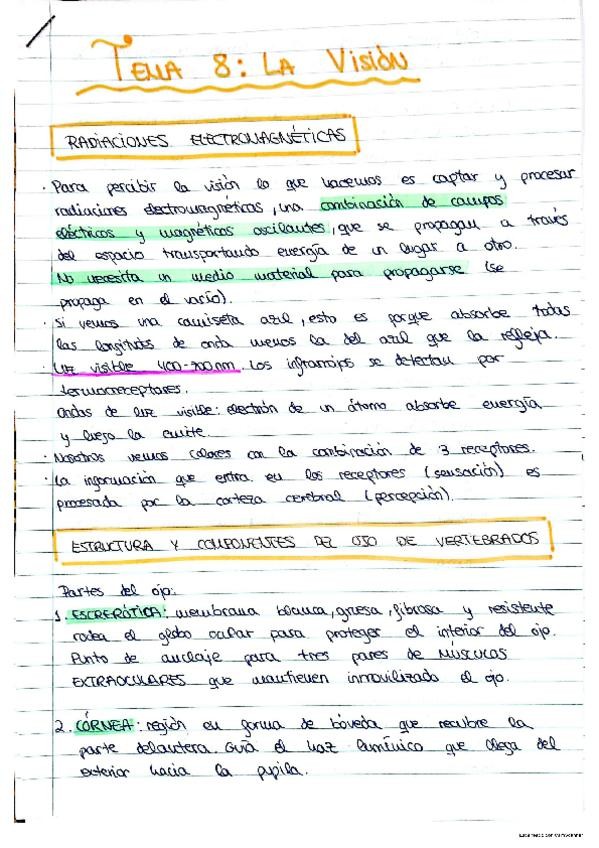 TEMA 8: LA VISIÓN
RADIACIONES ELECTROMAGNÉTICAS
· Para percibir la visión lo que hacemos es captar y procesar
radiaciones electromagnéticas, una combinación de campos
eléctricos y magnéticos oscilantes, que se propagan a través
del espacio transportando energía de un lugar a otro.
No necesita un medio material para propagarse (se
propaga en el vacío).
· Si vemos una camiseta azul, esto es porque absorbe todas
las longitudes de onda menos la del azul que la refleja.
· Luz visible 400-700nm. Los infrarrojos se detectan por
termorreceptores.
Ondas de luz visible: electrón de un átomo absorbe energía
y luego la emite.
· Nosotros vemos colores con la combinación de 3 receptores.
· La información que entra en los receptores (sensación) es
procesada por la corteza cerebral (percepción).
ESTRUCTURA Y COMPONENTES DEL OJO DE VERTEBRADOS
Partes del ojo:
1. ESCRERÓTICA: membrana blanca, gruesa, fibrosa y resistente
rodea el globo ocular para proteger el interior del ojo.
Punto de anclaje para tres pares de MÚSCULOS
EXTRAOCULARES que mantienen inmovilizado el ojo.
2. CÓRNEA: región en forma de bóveda que recubre la
parte delantera. Guía el haz lumínico que llega del
exterior hacia la pupila.